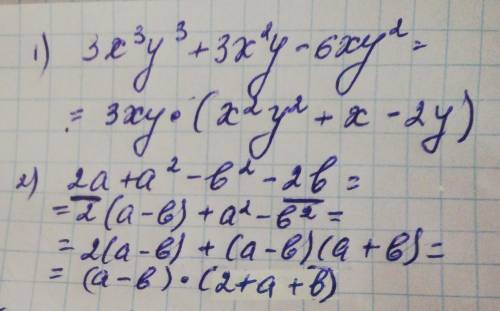 1) 3x³y³ + 3x²y - 6xy² =
= 3xy • (x²y² + x - 2y)
2) 2a + a² - в² - 2в =
= 2(a - в) + a² - в² =
= 2(a - в) + (a - в)(a + в) =
= (a - в) • (2 + a + в)